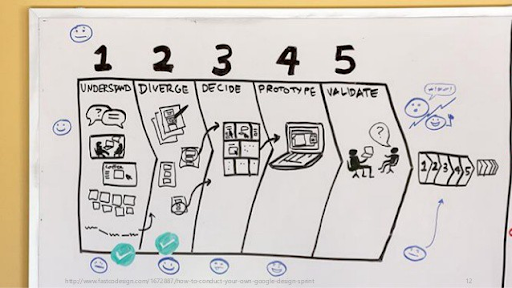 1 2 3 4 5
UNDERSTAND DIVERGE DECIDE PROTOTYPE VALIDATE
?
?
1 2 3 4 5
http://www.fastcodesign.com/1672887/how-to-conduct-your-own-google-design-sprint
12